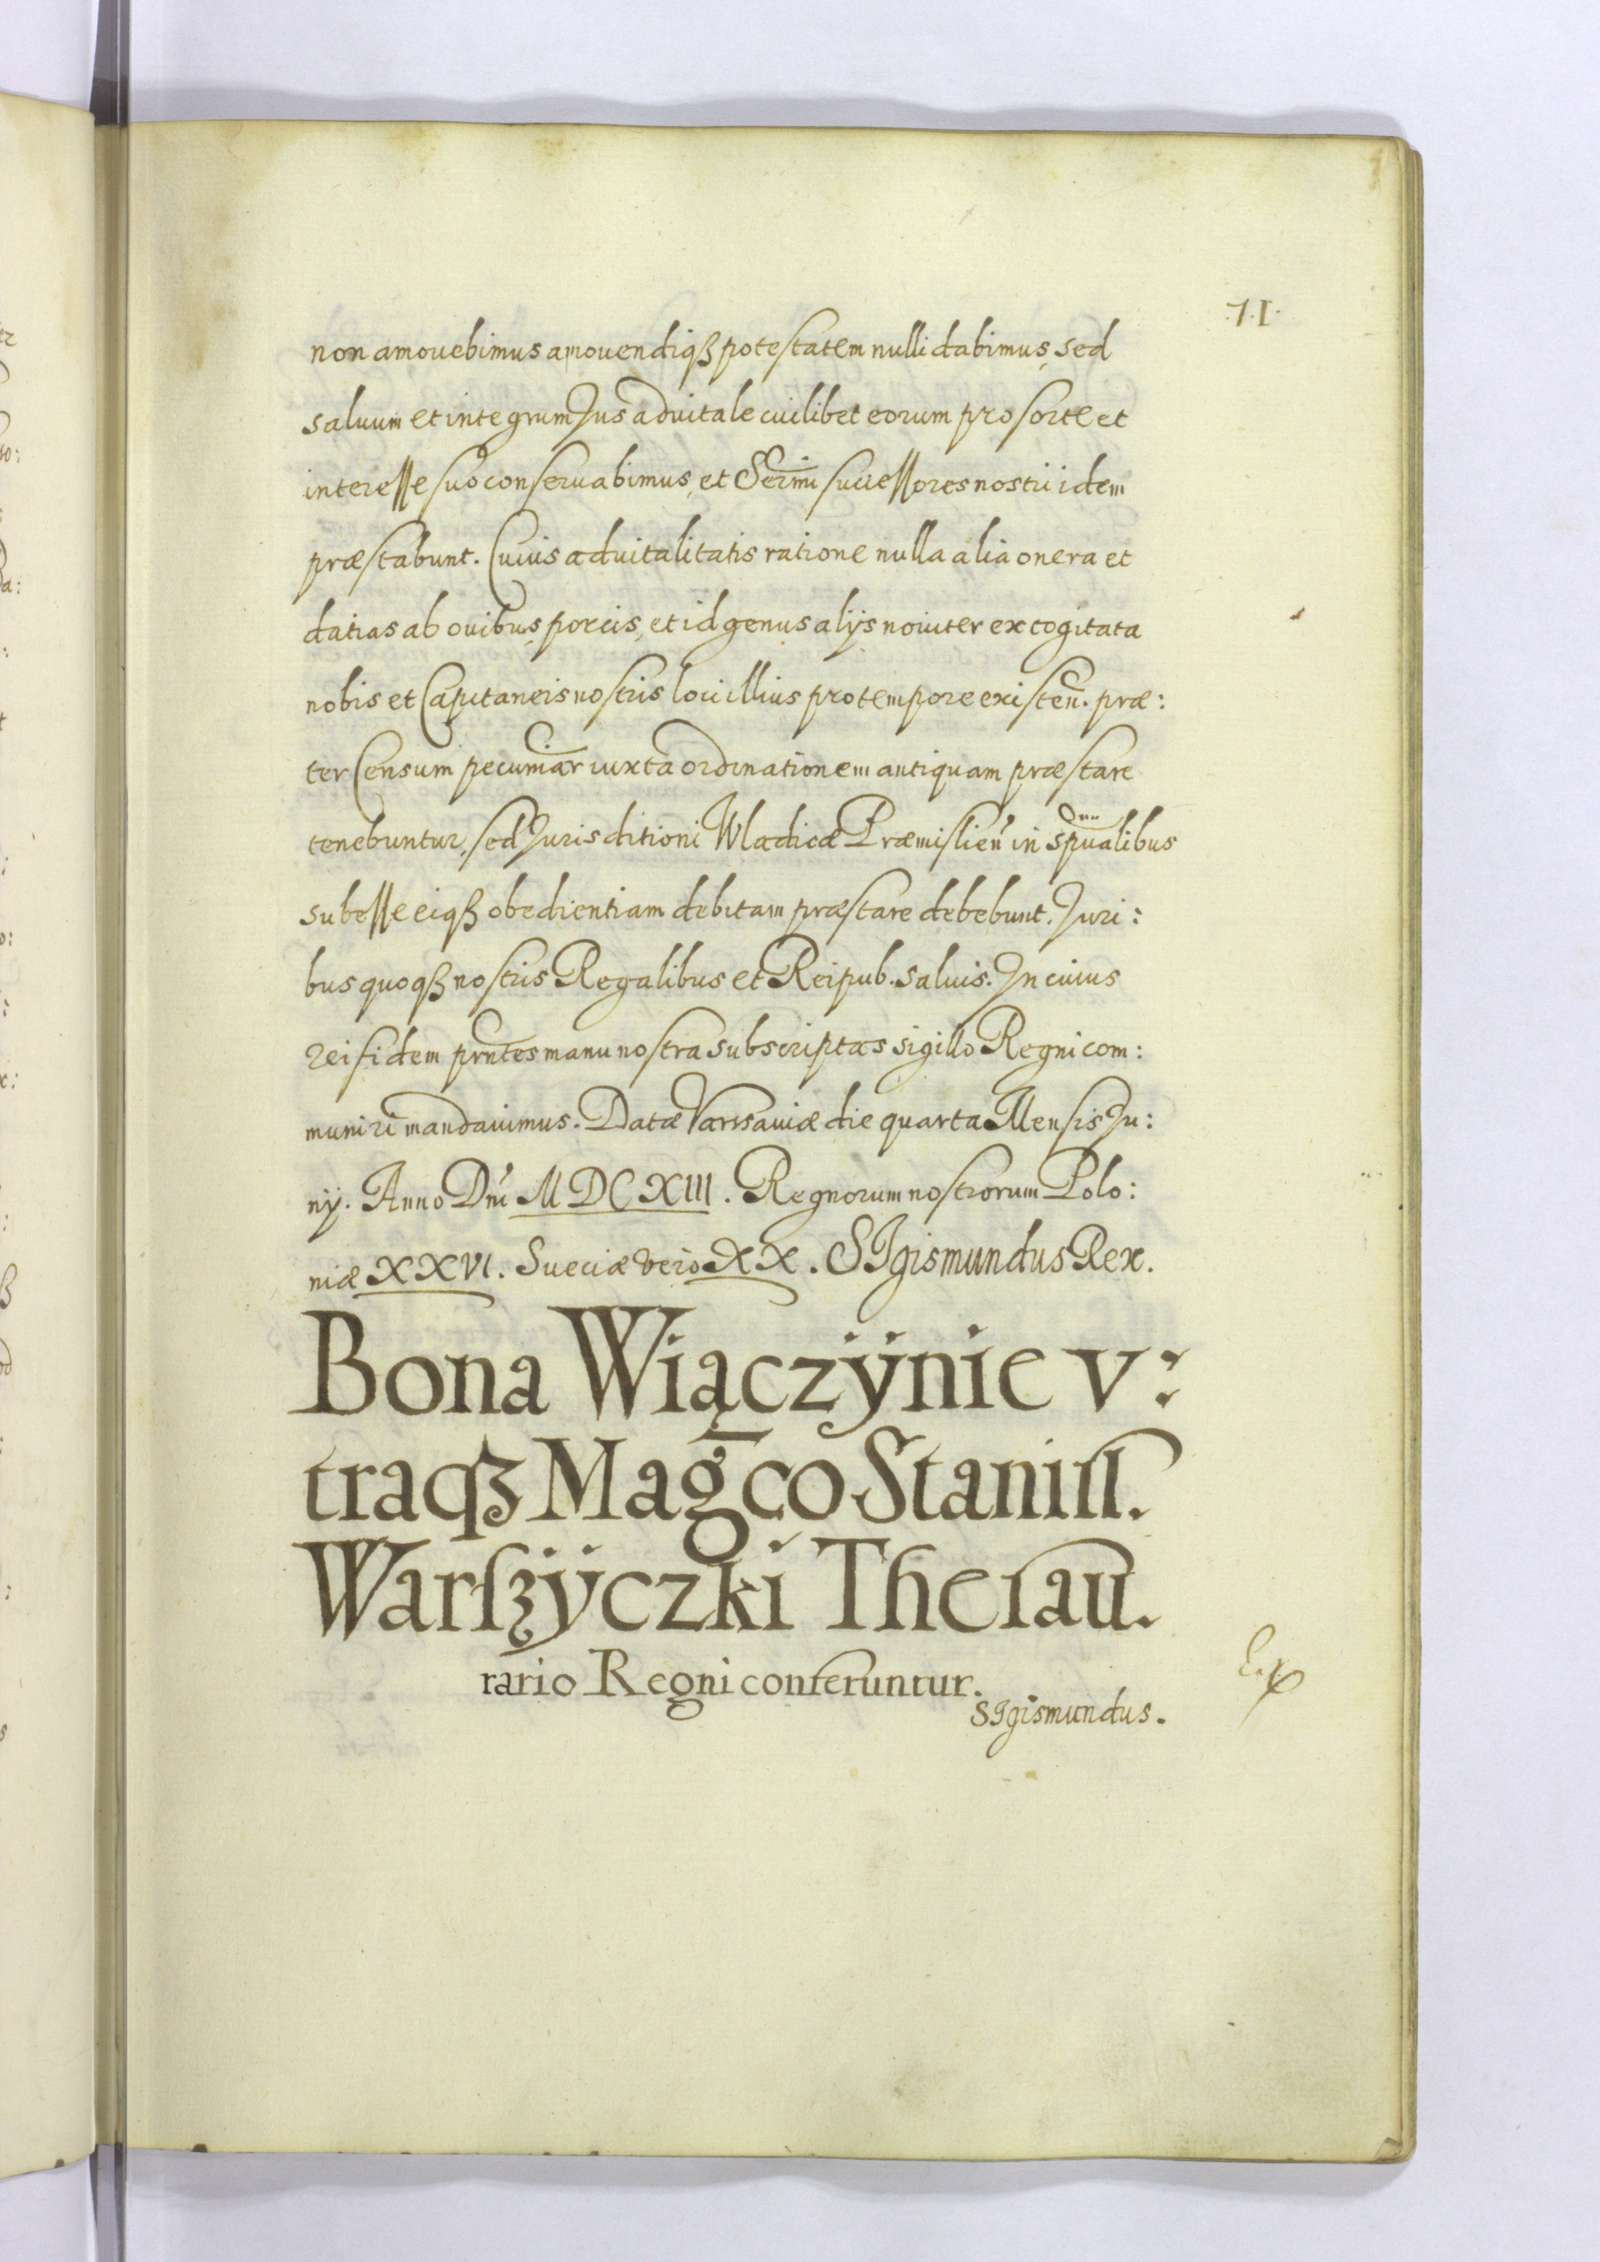 ·71·
non amouebimus amouendiqȝ potestatem nulli dabimus, sed
saluum et integrum Jus aduitale cuilibet eorum pro sorte et
interesse suo conseruabimus, et Sermi successores nostri idem
præstabunt. Cuius aduitalitatis ratione nulla alia onera et
datias ab ouibus, porcis, et id genus alijs nouiter excogitata
nobis et Capitaneis nostris loci illius pro tempore existen. præ:
ter Censum pecuniar iuxta ordinationem antiquam præstare
tenebuntur, sed Jurisditioni Wladicæ Præmislien in spualibus
subesse eiqȝ obedientiam debitam præstare debebunt. Juri:
bus quoqȝ nostris Regalibus et Reipub. saluis. In cuius
rei fidem prntes manu nostra subscriptas sigillo Regni com:
muniri mandauimus. Datæ Varsauiæ die quarta Mensis Ju:
nij. Anno Dni MDCXIII. Regnorum nostrorum Polo:
niæ XXVI. Sueciæ vero XX. SIgismundus Rex.
Bona Wiączÿnie v:
traqȝ Magco Stanisl.
Warsȝÿczki Thesau.
rario Regni conferuntur.
SIgismundus.